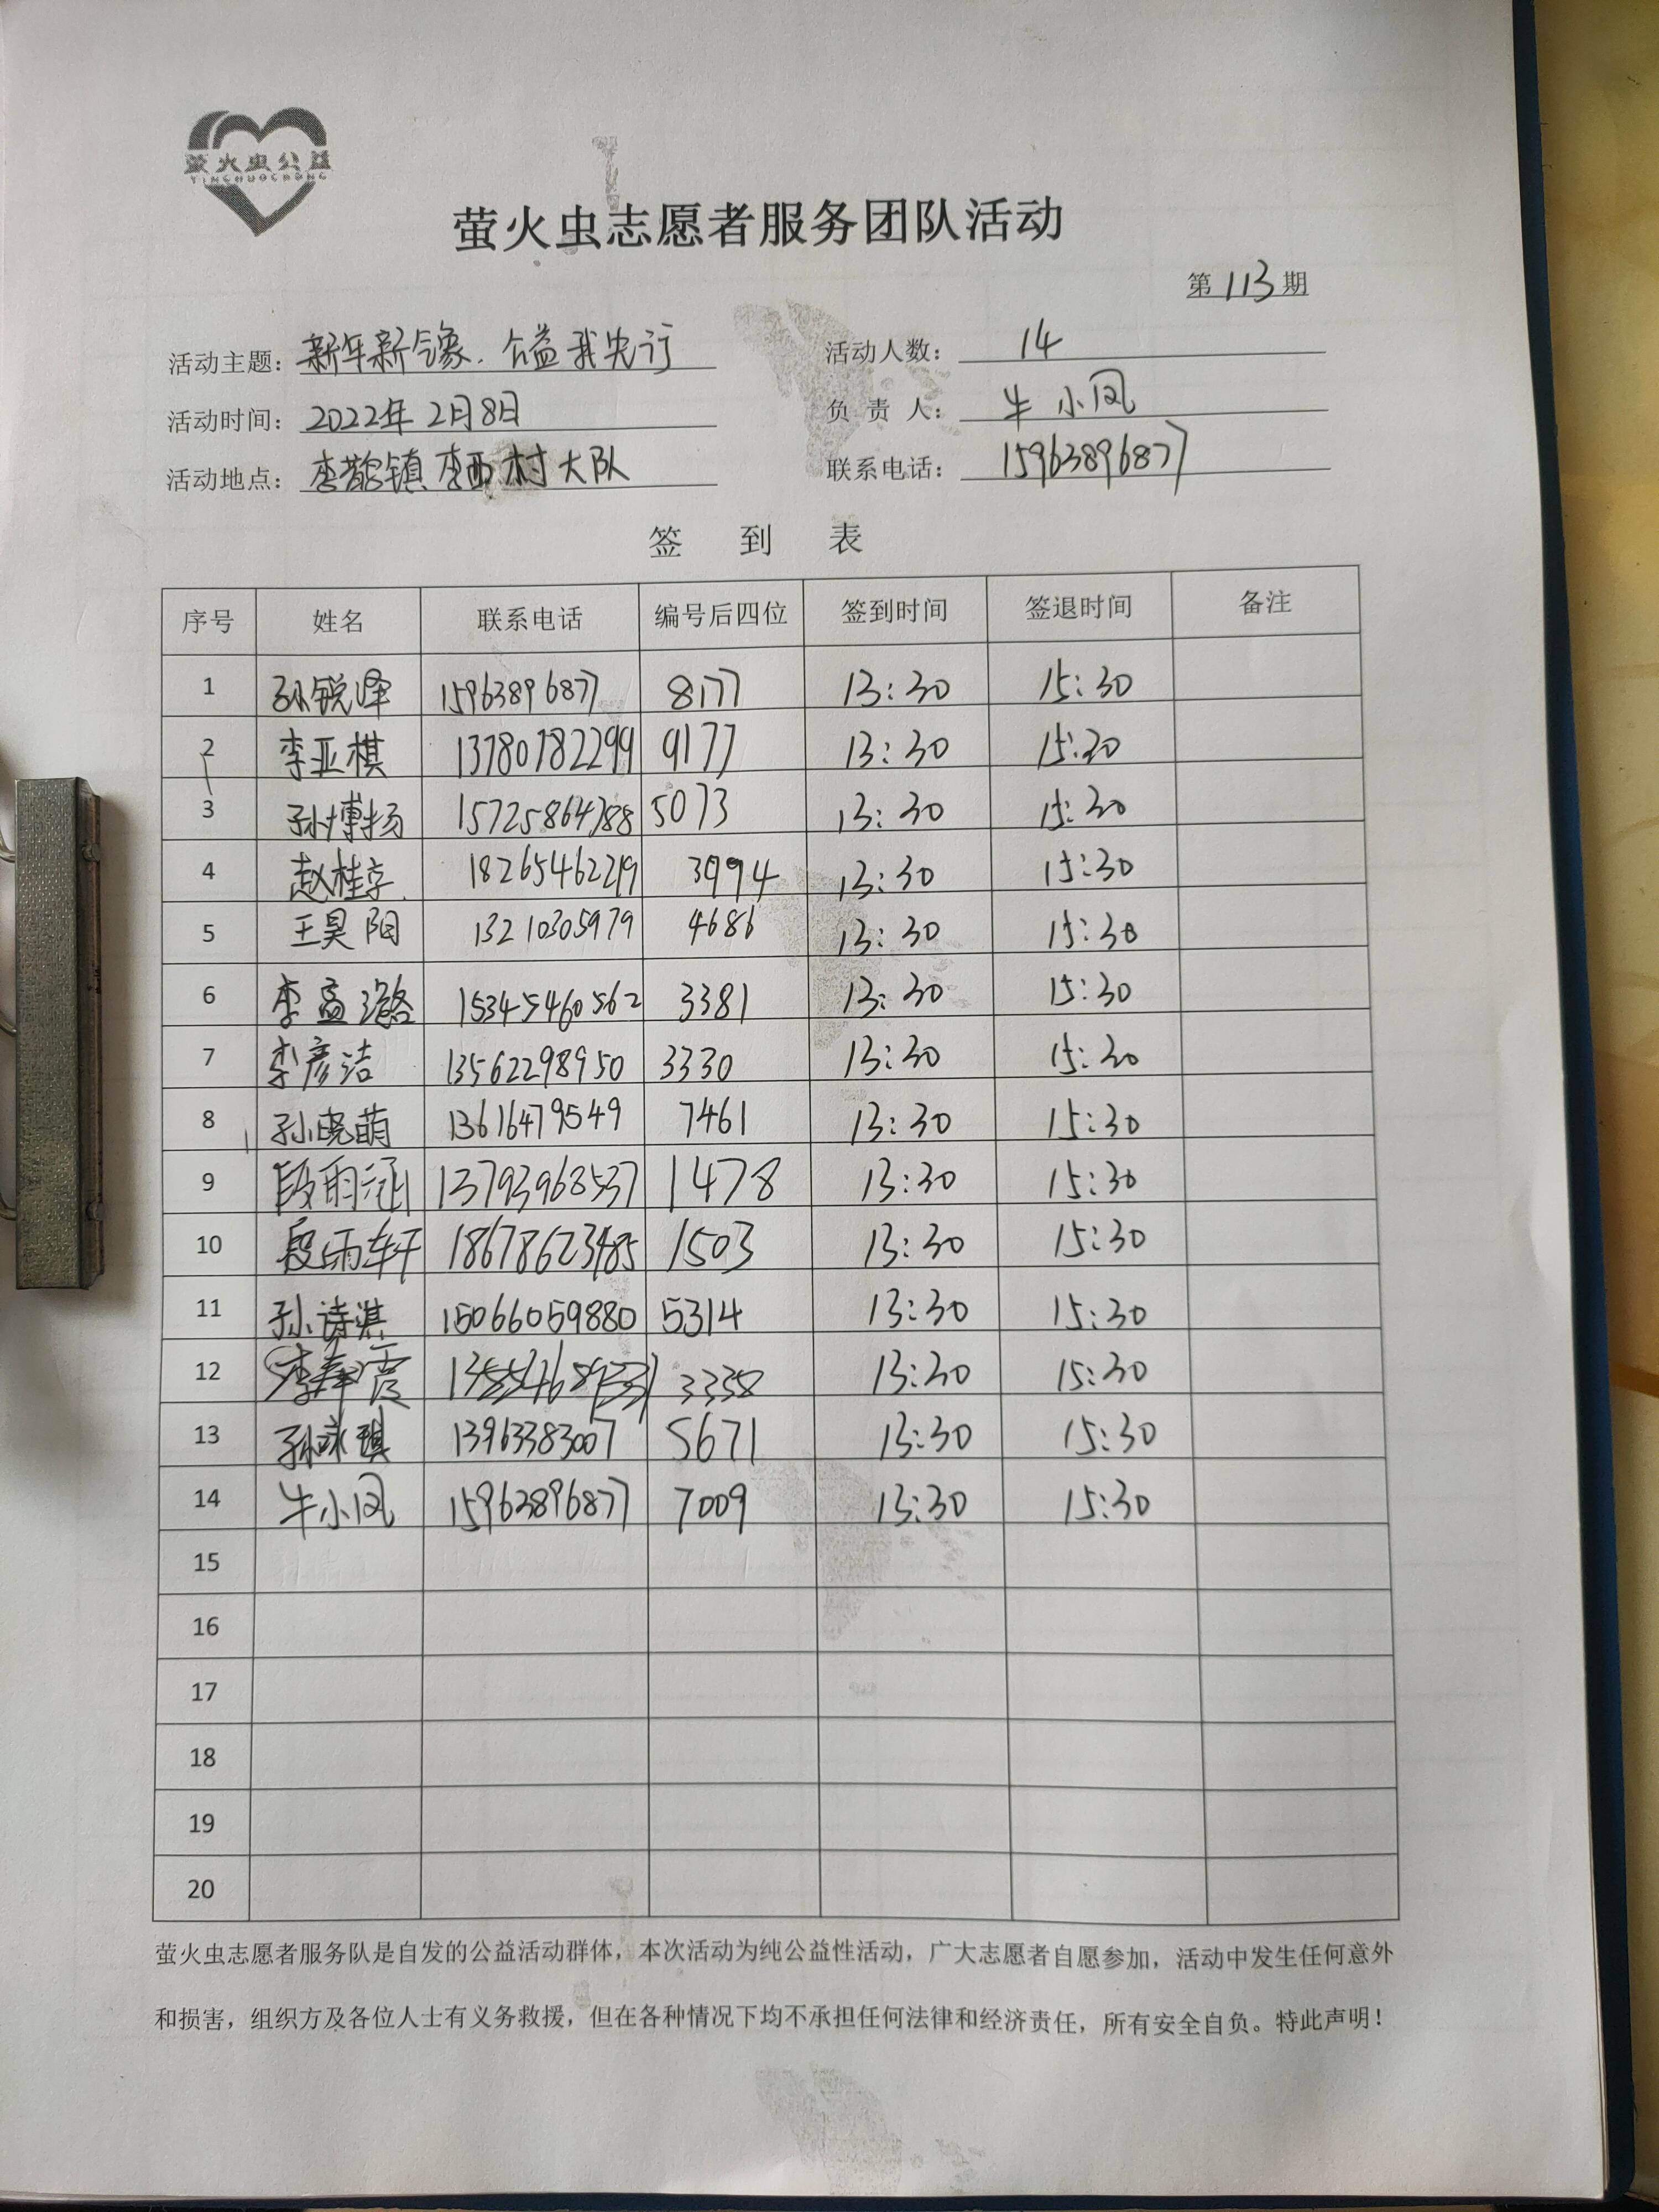 萤火虫公益
YINGHUOCHONG
萤火虫志愿者服务团队活动
第113期
活动主题：新年新气象.公益我先行 活动人数：14
活动时间：2022年2月8日 负责人：牛小凤
活动地点：李鹊镇李西村大队 联系电话：15963896877
签到表
序号 姓名 联系电话 编号后四位 签到时间 签退时间 备注
1 孙锐泽 15963896877 8177 13:30 15:30
2 李亚棋 13780782299 9177 13:30 15:30
3 孙博扬 15725864788 5073 13:30 15:30
4 赵桂 18265462219 3994 13:30 15:30
5 王昊阳 13210305979 4686 13:30 15:30
6 李孟璐 15345460562 3381 13:30 15:30
7 李彦洁 13562298950 3330 13:30 15:30
8 孙晓萌 13616479549 7461 13:30 15:30
9 段雨涵 13793968537 1478 13:30 15:30
10 段雨轩 18678623485 1503 13:30 15:30
11 孙诗淇 15066059880 5314 13:30 15:30
12 李 震 3338 13:30 15:30
13 孙咏琪 13963383007 5671 13:30 15:30
14 牛小凤 15963896877 7009 13:30 15:30
15
16
17
18
19
20
萤火虫志愿者服务队是自发的公益活动群体，本次活动为纯公益性活动，广大志愿者自愿参加，活动中发生任何意外
和损害，组织方及各位人士有义务救援，但在各种情况下均不承担任何法律和经济责任，所有安全自负。特此声明！